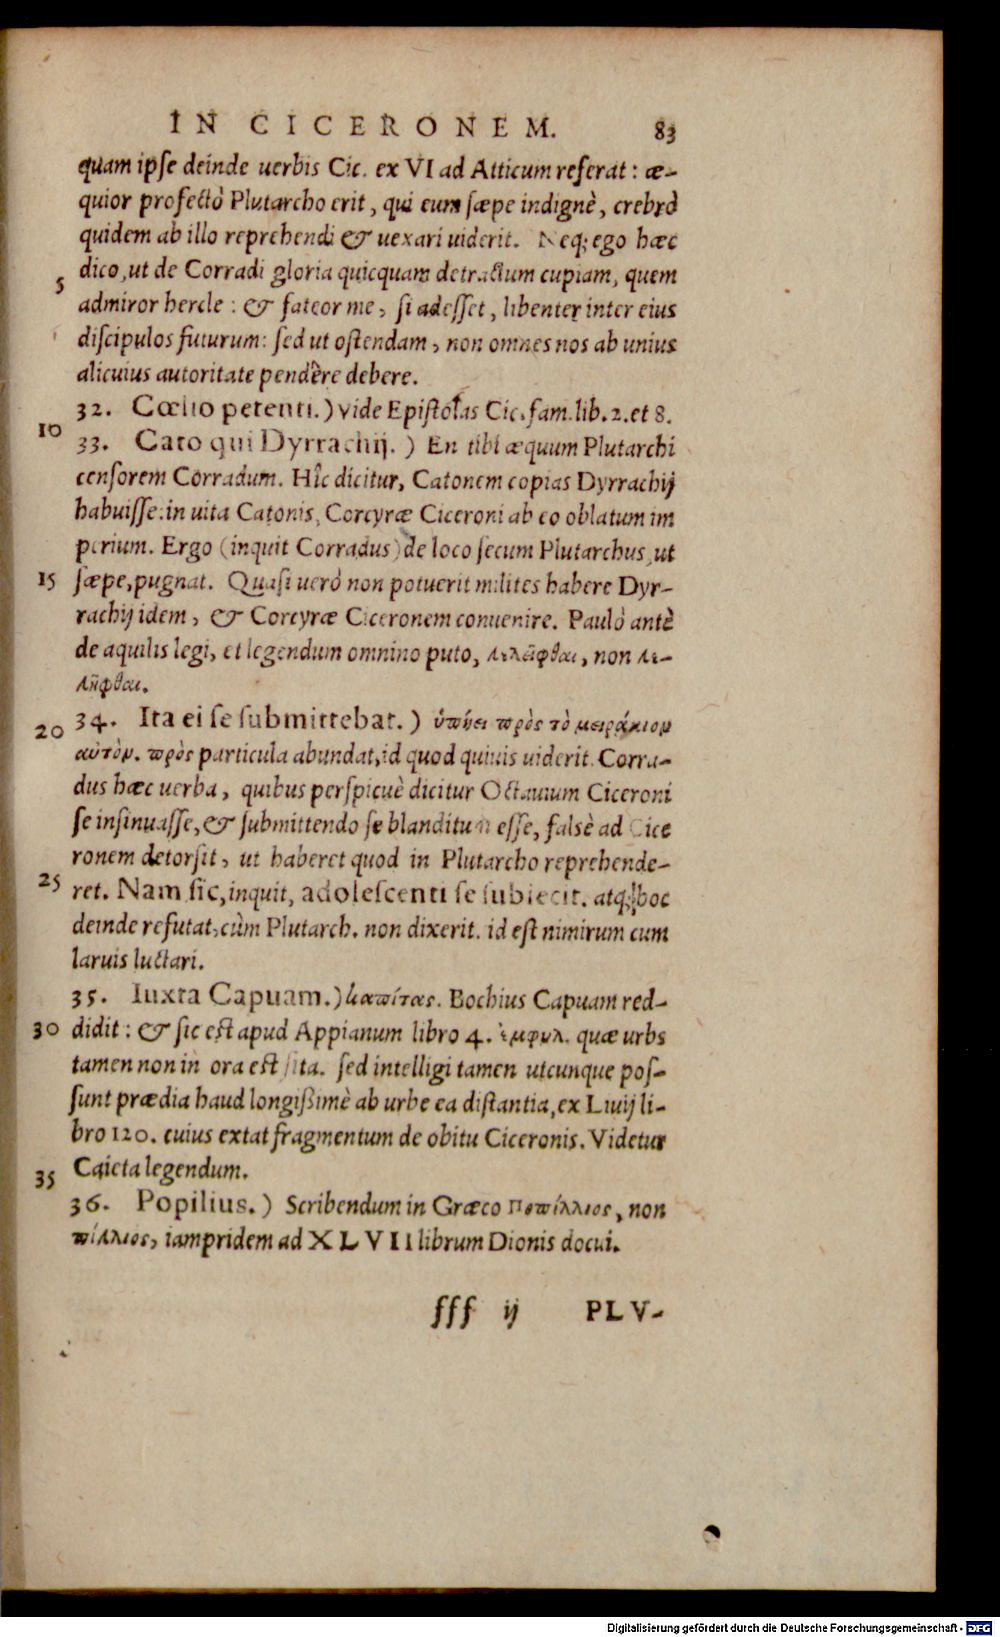 IN CICERONEM. 83
quam ipſe deinde uerbis Cic. ex VI ad Atticum referat: æ-
quior profectò Plutarcho erit, qui eum ſæpe indignè, crebrò
quidem ab illo reprehendi & uexari uiderit. Neq; ego hæc
dico, ut de Corradi gloria quicquam detractum cupiam, quem
5
admiror hercle: & fateor me, ſi adeſſet, libenter inter eius
diſcipulos futurum: ſed ut oſtendam, non omnes nos ab unius
alicuius autoritate pendêre debere.
32. Cœlio petenti.) vide Epiſtolas Cic. fam. lib. 2. et 8.
10
33. Cato qui Dyrrachij.) En tibi æquum Plutarchi
cenſorem Corradum. Hîc dicitur, Catonem copias Dyrrachij
habuiſſe: in uita Catonis, Corcyræ Ciceroni ab eo oblatum im
perium. Ergo (inquit Corradus) de loco ſecum Plutarchus, ut
15 ſæpe, pugnat. Quaſi uerò non potuerit milites habere Dyr-
rachij idem, & Corcyræ Ciceronem conuenire. Paulò antè
de aquilis legi, et legendum omnino puto, λελεῖφθαι, non λε-
λῆφθαι.
20 34. Ita ei ſe ſubmittebat.) ὑπῄει πρὸς τὸ μειράκιον
αὐτὸν. πρὸς particula abundat, id quod quiuis uiderit. Corra-
dus hæc uerba, quibus perſpicuè dicitur Octauium Ciceroni
ſe inſinuaſſe, & ſubmittendo ſe blanditum eſſe, falsè ad Cice
ronem detorſit, ut haberet quod in Plutarcho reprehende-
25 ret. Nam ſic, inquit, adoleſcenti ſe ſubiecit. atq; hoc
deinde refutat, cùm Plutarch. non dixerit. id eſt nimirum cum
laruis luctari.
35. Iuxta Capuam.) καπίτας. Bochius Capuam red-
30 didit: & ſic eſt apud Appianum libro 4. ἐμφυλ. quæ urbs
tamen non in ora eſt ſita. ſed intelligi tamen utcunque poſ-
ſunt prædia haud longißimè ab urbe ea diſtantia, ex Liuij li-
bro 120. cuius extat fragmentum de obitu Ciceronis. Videtur
35 Caieta legendum.
36. Popilius.) Scribendum in Græco Ποπίλλιος, non
πίλλιος, iampridem ad XLVII librum Dionis docui.
fff ij PLV-
Digitalisierung gefördert durch die Deutsche Forschungsgemeinschaft - DFG